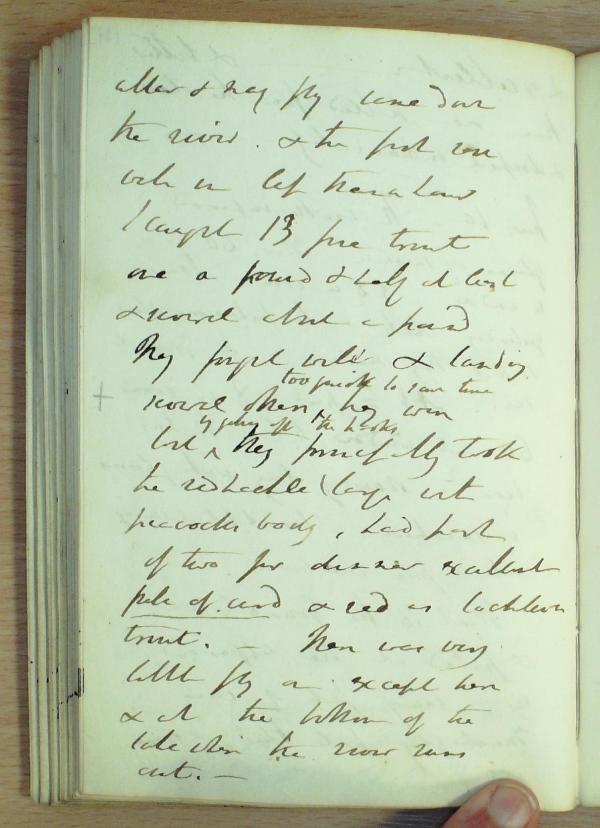 alder & may fly came down
the river. & the first
with in less than a hour
I caught 13 fine trout
one a pound & half at least
& several about a pound
They fought well & landing
too quick to save time
+ several when they were
by getting off the hooks
lost ^ they principally took
the red hackle large with
peacocks body, had part
of two for dinner excellent
full of curd & red as lochleven
trout. — There was very
little fly on except here
& at the bottom of the
lake where the river runs
out. —